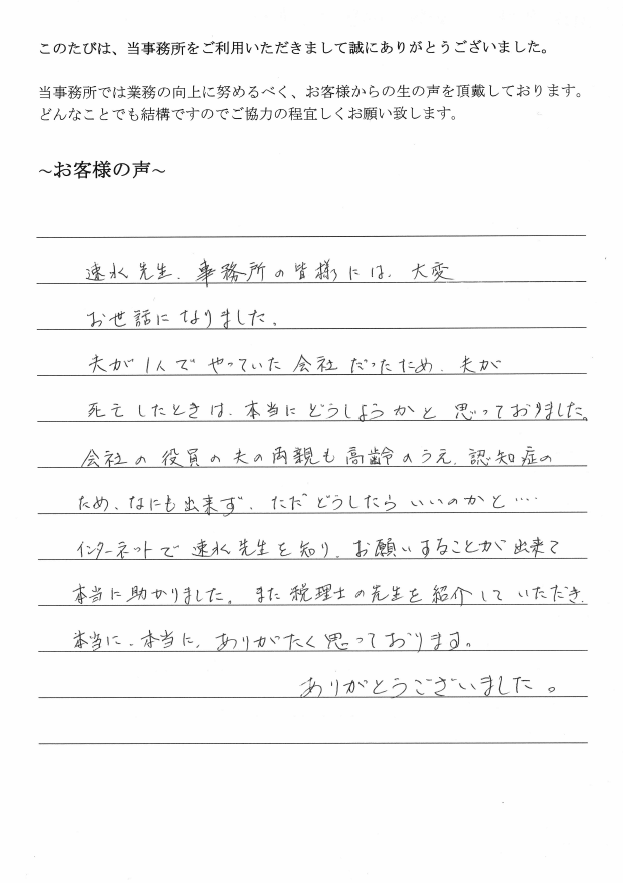 このたびは、当事務所をご利用いただきまして誠にありがとうございました。
当事務所では業務の向上に努めるべく、お客様からの生の声を頂戴しております。
どんなことでも結構ですのでご協力の程宜しくお願い致します。
~お客様の声~
速水先生、事務所の皆様には、大変
お世話になりました。
夫が1人でやっていた会社だったため、夫が
死亡したときは、本当にどうしようかと思っておりました。
会社の役員の夫の両親も高齢のうえ、認知症の
ため、なにも出来ず、ただどうしたらいいのかと‥‥
インターネットで速水先生を知り、お願いすることが出来て
本当に助かりました。また税理士の先生を紹介していただき、
本当に、本当に、ありがたく思っております。
ありがとうございました。